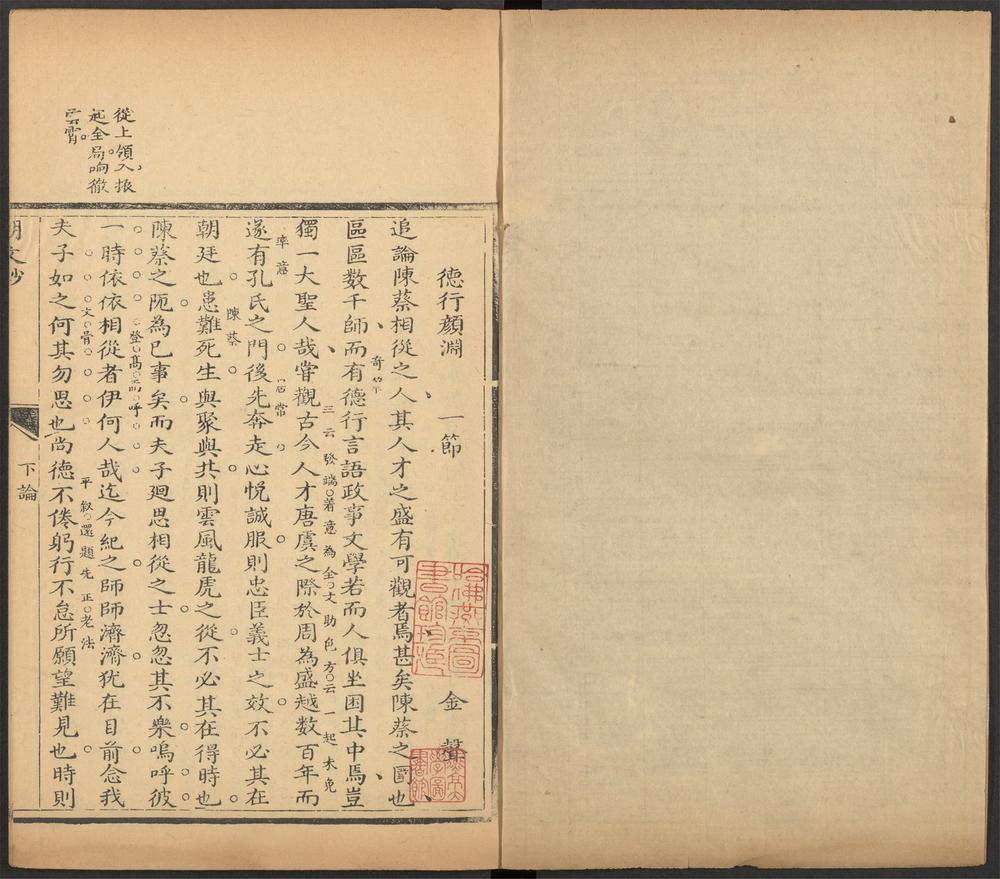 從上領入振
起全局响徹
雲霄
德行顏淵 一節
金聲
追論陳蔡相從之人其人才之盛有可觀者焉甚矣陳蔡之圍也
奇筆
區區数千師而有德行言語政事文學若而人俱坐困其中焉豈
三云發端着意為全文助色方云一起未免
獨一大聖人哉嘗觀古今人才唐虞之際於周為盛越数百年而
率意
居常
遂有孔氏之門後先奔走心悅誠服則忠臣義士之效不必其在
陳蔡
朝廷也患難死生與聚與共則雲風龍虎之從不必其在得時也
陳蔡之阨為已事矣而夫子廻思相從之士忽忽其不樂嗚呼彼
登高而呼
一時依依相從者伊何人哉迄今紀之師師濟濟犹在目前念我
文骨
平叙還題先正老法
夫子如之何其勿思也尚德不倦躬行不怠所願望難見也時則
明文鈔
下論
哈佛燕京圖
書館珍藏